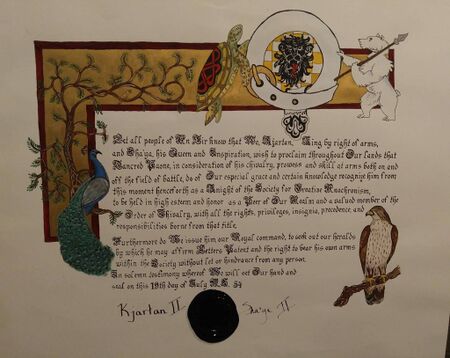 Let all people of An Tir know that We, Kjartan, King by right of arms,
and Sha'ya, his Queen and Inspiration, wish to proclaim throughout Our lands that
Tancred Paone, in consideration of his chivalry, prowess and skill at arms both on and
off the field of battle, do of Our especial grace and certain knowledge recognize him from
this moment henceforth as a Knight of the Society for Creative Anachronism,
to be held in high esteem and honor as a Peer of Our Realm and a valued member of the
Order of Chivalry, with all the rights, privileges, insignia, precedence, and
responsibilities borne from that title.
Furthermore do We issue him our Royal command, to seek out our heralds
by which he may affirm Letters Patent and the right to bear his own arms
within the Society without let or hindrance from any person.
In solemn testimony whereof We will set Our hand and
seal on this 19th day of July A.S. 54
Kjartan II Sha'ya II